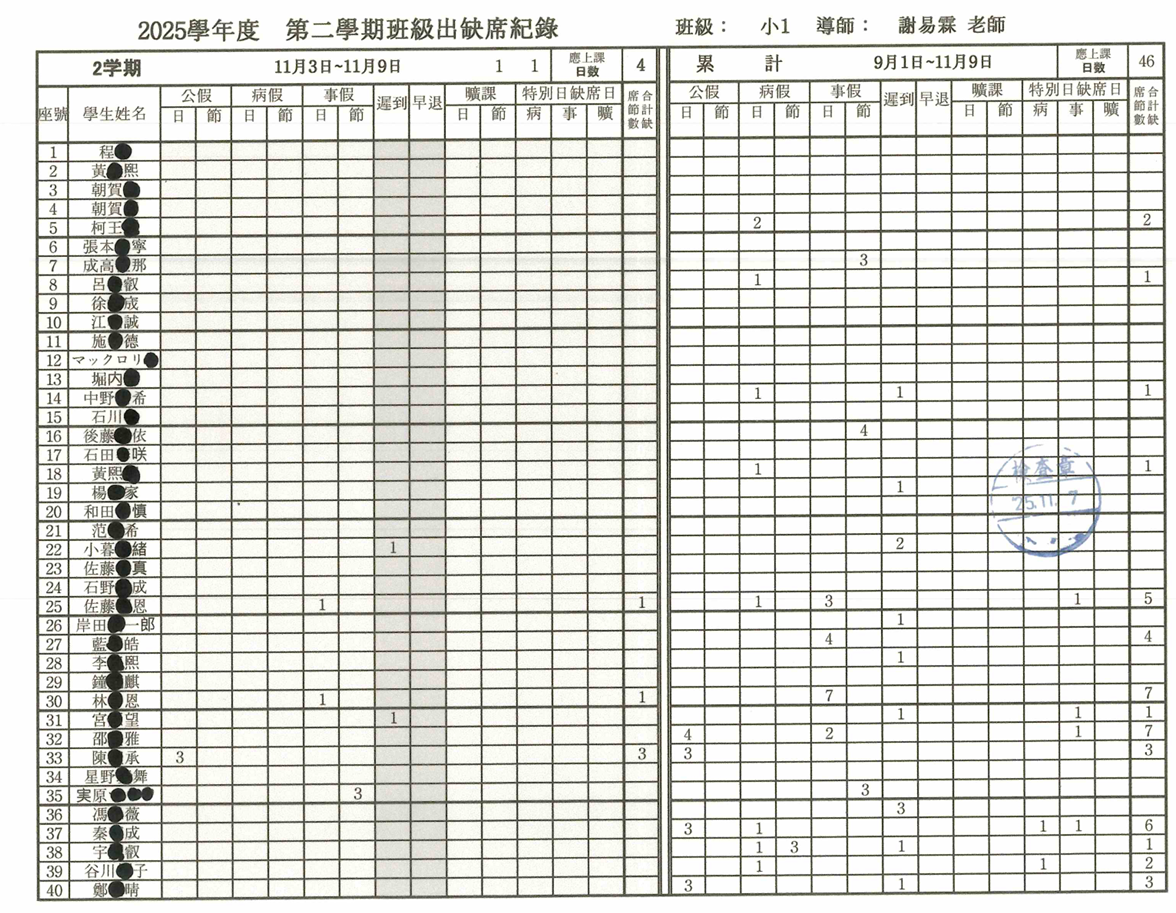 2025學年度 第二學期班級出缺席紀錄 班級： 小1 導師： 謝易霖 老師
2學期 11月3日~11月9日 1 1 應上課日数 4 累 計 9月1日~11月9日 應上課日数 46
座號 學生姓名 公假 病假 事假 遲到 早退 曠課 特別日缺席日 合計缺席節數 公假 病假 事假 遲到 早退 曠課 特別日缺席日 合計缺席節數
日 節 日 節 日 節 日 節 病 事 曠 日 節 日 節 日 節 日 節 病 事 曠
1 程
2 黃 熙
3 朝賀
4 朝賀
5 柯王 2 2
6 張本 寧
7 成高 那 3
8 呂 叡 1 1
9 徐 宬
10 江 誠
11 施 德
12 マックロリ
13 堀内
14 中野 希 1 1 1
15 石川
16 後藤 依 4
17 石田 咲
18 黃熙 1 1
19 楊 家 1
20 和田 慎
21 范 希
22 小暮 緒 1 2
23 佐藤 真
24 石野 成
25 佐藤 恩 1 1 1 3 1 5
26 岸田 一郎 1
27 藍 皓 4 4
28 李 熙 1
29 鐘 麒
30 林 恩 1 1 7 7
31 宮 望 1 1 1 1
32 邵 雅 4 2 1 7
33 陳 承 3 3 3 3
34 星野 舞
35 実原 3 3
36 馮 薇 3
37 秦 成 3 1 1 1 6
38 宇 叡 1 3 1 1
39 谷川 子 1 1 2
40 鄭 晴 3 1 3
検査章
25.11.7